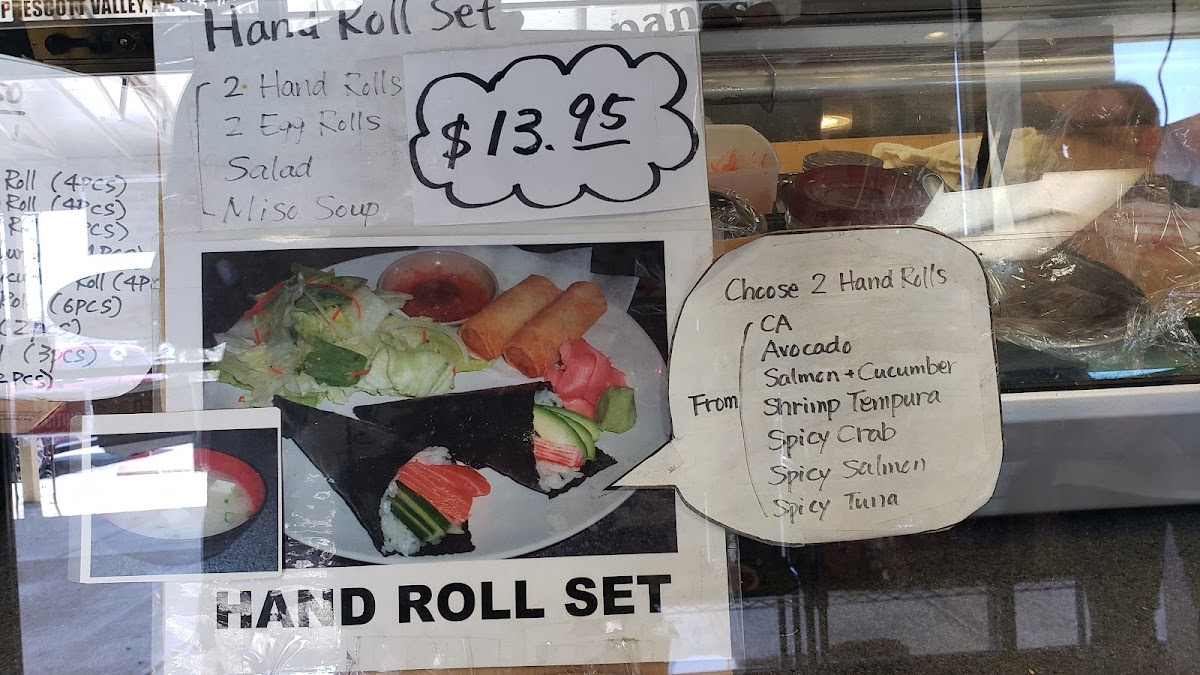 PRESCOTT VALLEY,
Hand Roll Set
2 Hand Rolls
2 Egg Rolls
Salad
Miso Soup
$13.95
Roll (4PCS)
Roll (4PCS)
Roll (4PC
(6PCS)
(3PCS)
2PCS)
Choose 2 Hand Rolls
From
CA
Avocado
Salmon + Cucumber
Shrimp Tempura
Spicy Crab
Spicy Salmon
Spicy Tuna
HAND ROLL SET